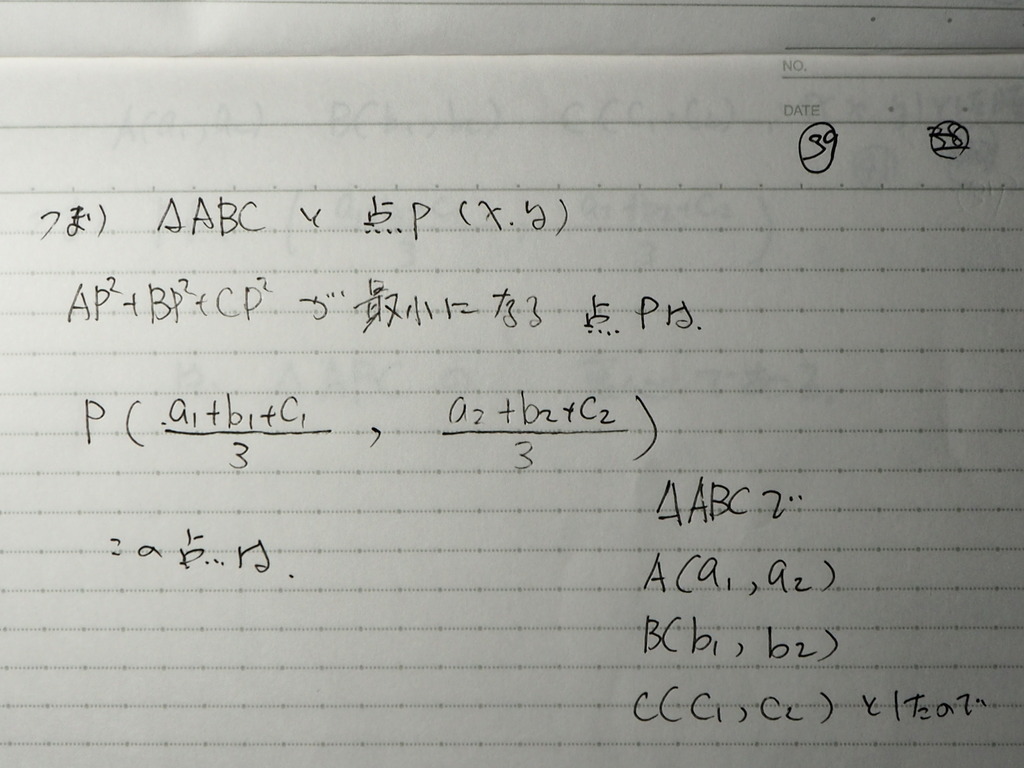 NO.
DATE
39 38
つまり △ABC と 点P (x.y)
AP²+BP²+CP² が 最小になる 点 Pは.
P ( a₁+b₁+c₁/3 , a₂+b₂+c₂/3 )
この点は.
△ABCで
A(a₁, a₂)
B(b₁, b₂)
C(c₁, c₂) としたので